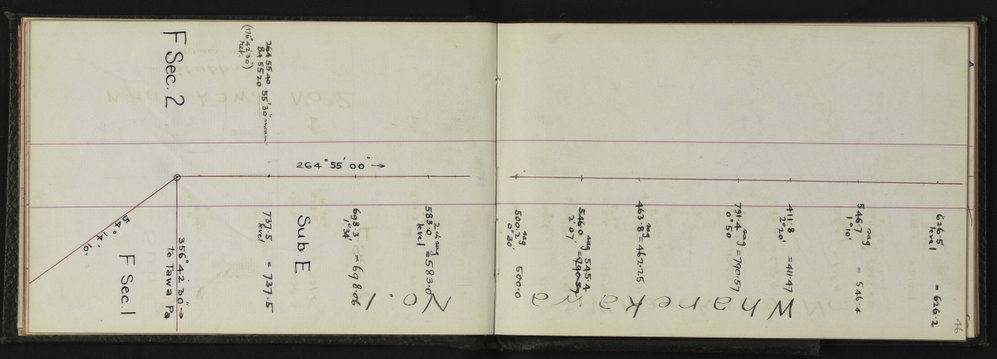 F Sec. 2
264 55 40
84 55 20 55' 30" mean
(176° 42' 30")
264° 55' 00" →
356° 42' 30" →
to Tawa Pa
54° 14' 10"
F Sec 1
Sub E
737.5 = 737.5
level
698.3 = 698.06
1° 34'
583.0 = 583.0
level
No. 1
500.2 500.0
0° 20'
546.0 545.4
2° 07'
463.8 = 462.25
791.4 = 790.57
0° 50'
411.8 = 411.47
2° 20'
546.7 = 546.4
1° 10'
626.5 = 626.2
level
Wharekawa
46